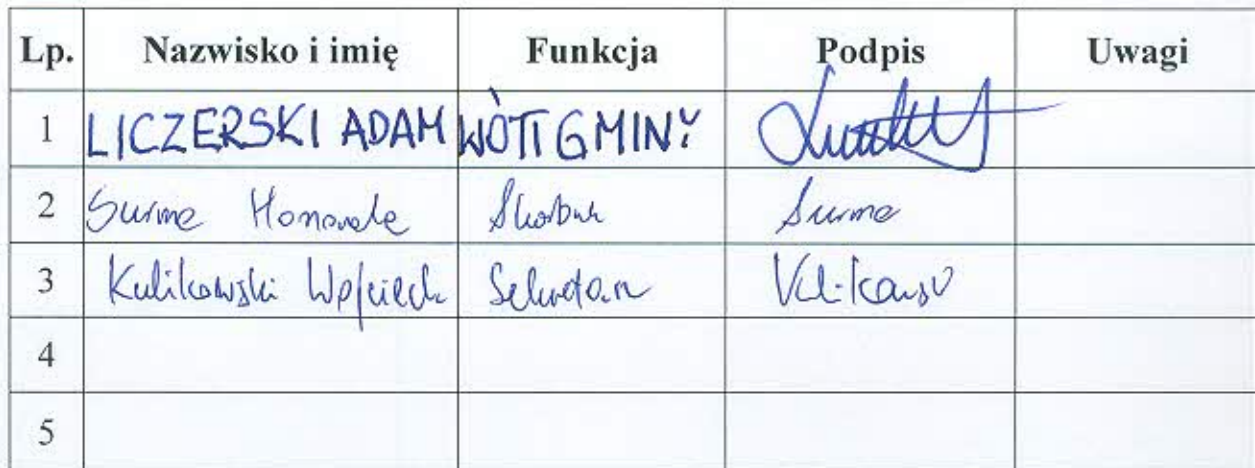 Lp. Nazwisko i imię Funkcja Podpis Uwagi
1 LICZERSKI ADAM WÓJT GMINY
2 Surma Honorata Skarbnik Surma
3 Kulikowski Wojciech Sekretarz
4
5